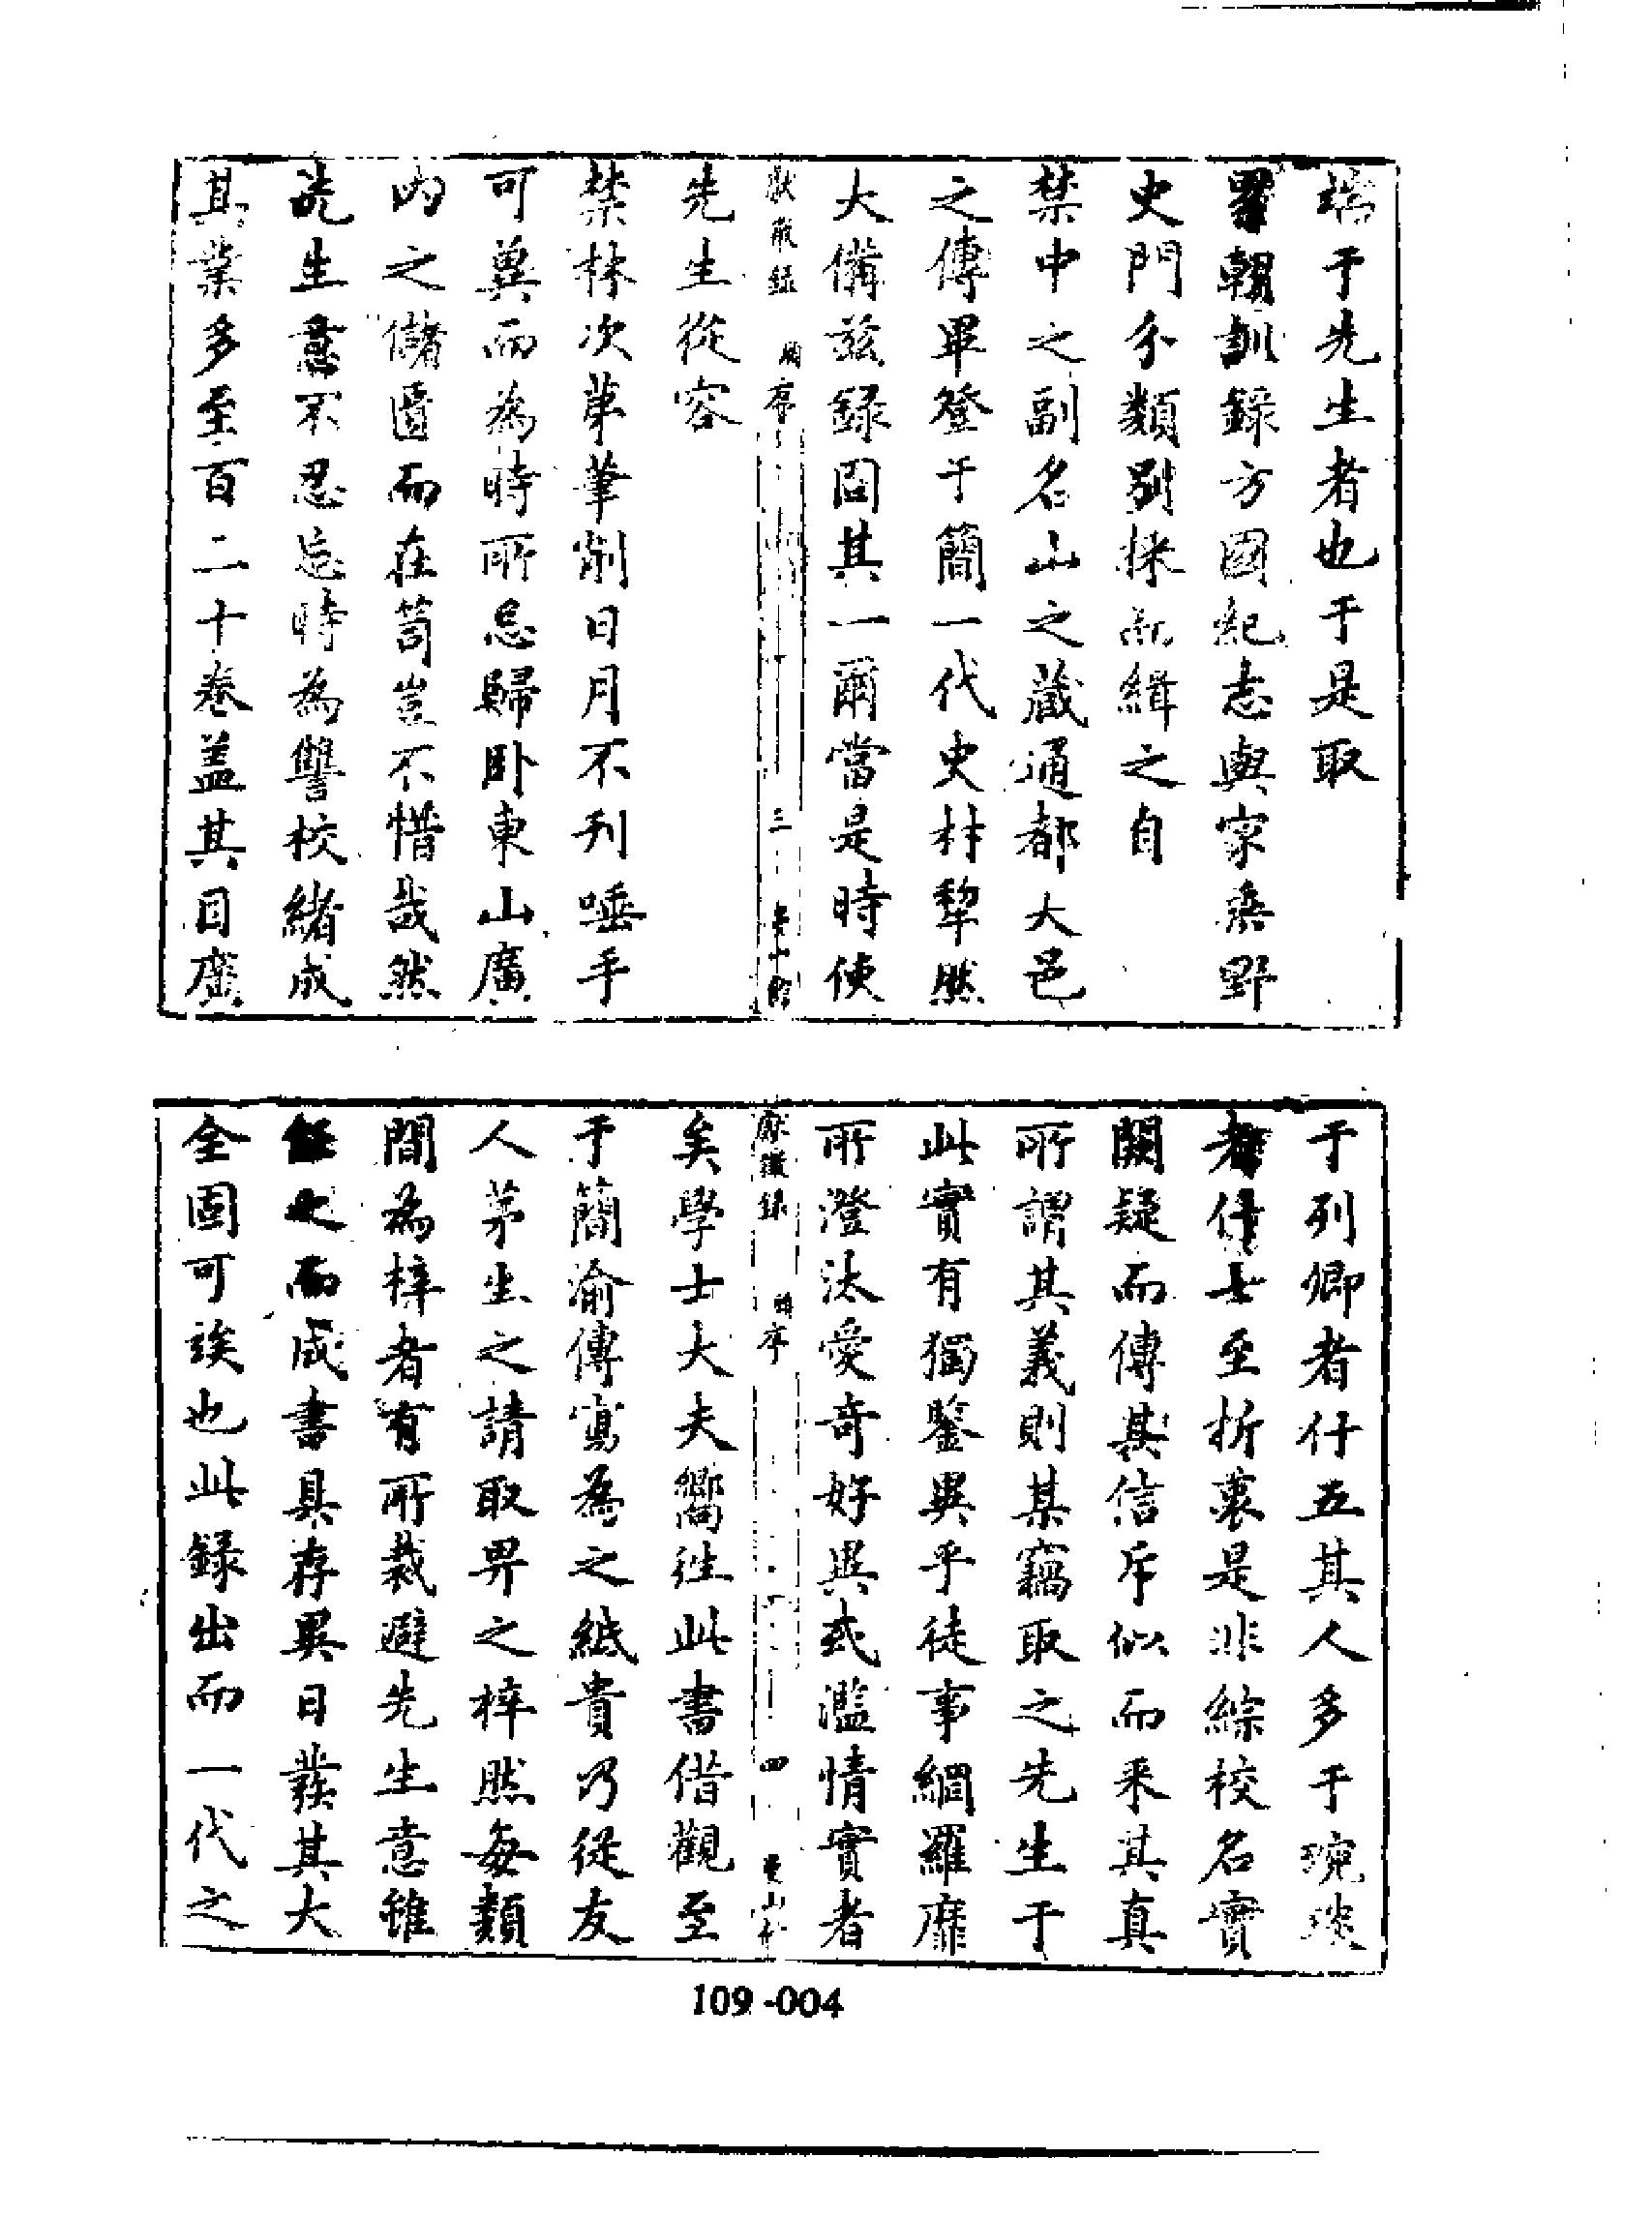 端于先生者也于是取
累朝訓錄方國紀志與家乘野
史門分類別採而緝之自
禁中之副名山之藏通都大邑
之傳畢登于簡一代史材犂然
大備茲録固其一爾當是時使
獻徵録 序 三
先生從容
禁林次第筆削日月不刋唾手
可兾而為時所忌歸卧東山廣
內之儲匱而在笥豈不惜哉然
先生意不忍忘時為讐校緒成
其業多至百二十卷盖其目廣
于列卿者什五其人多于琬琰
者什七至折衷是非綜校名實
闕疑而傳其信斥似而采其真
所謂其義則某竊取之先生于
此實有獨鑒異乎徒事網羅靡
所澄汰愛奇好異或濫情實者
獻徵録 序 四
矣學士大夫嚮徃此書借觀至
于簡渝傳寫為之紙貴乃從友
人茅生之請取畀之梓然每類
間為梓者有所裁避先生意雖
之而成書具存異日發其大
全固可俟也此録出而一代之
109-004